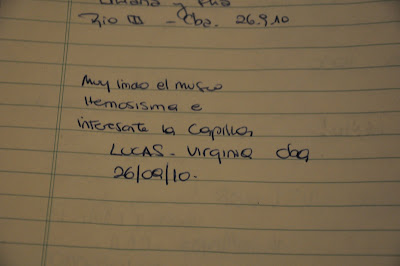 y
Río III - Cba. 26.9.10
Muy lindo el museo
Hemosisma e
interesante la Capilla,
LUCAS - Virginia Cba
26/09/10.